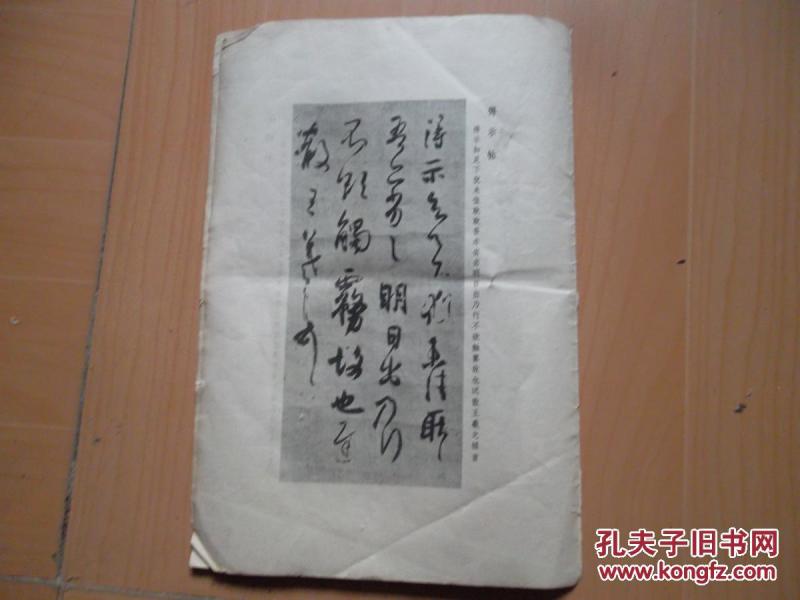 得示帖
得示知足下犹未佳耿耿吾亦劣劣明日出乃行不欲触雾故也迟散王羲之顿首
得示知足下猶未佳耿耿
吾亦劣劣明日出乃行
不欲觸霧故也遲
散王羲之頓首
孔夫子旧书网
www.kongfz.com